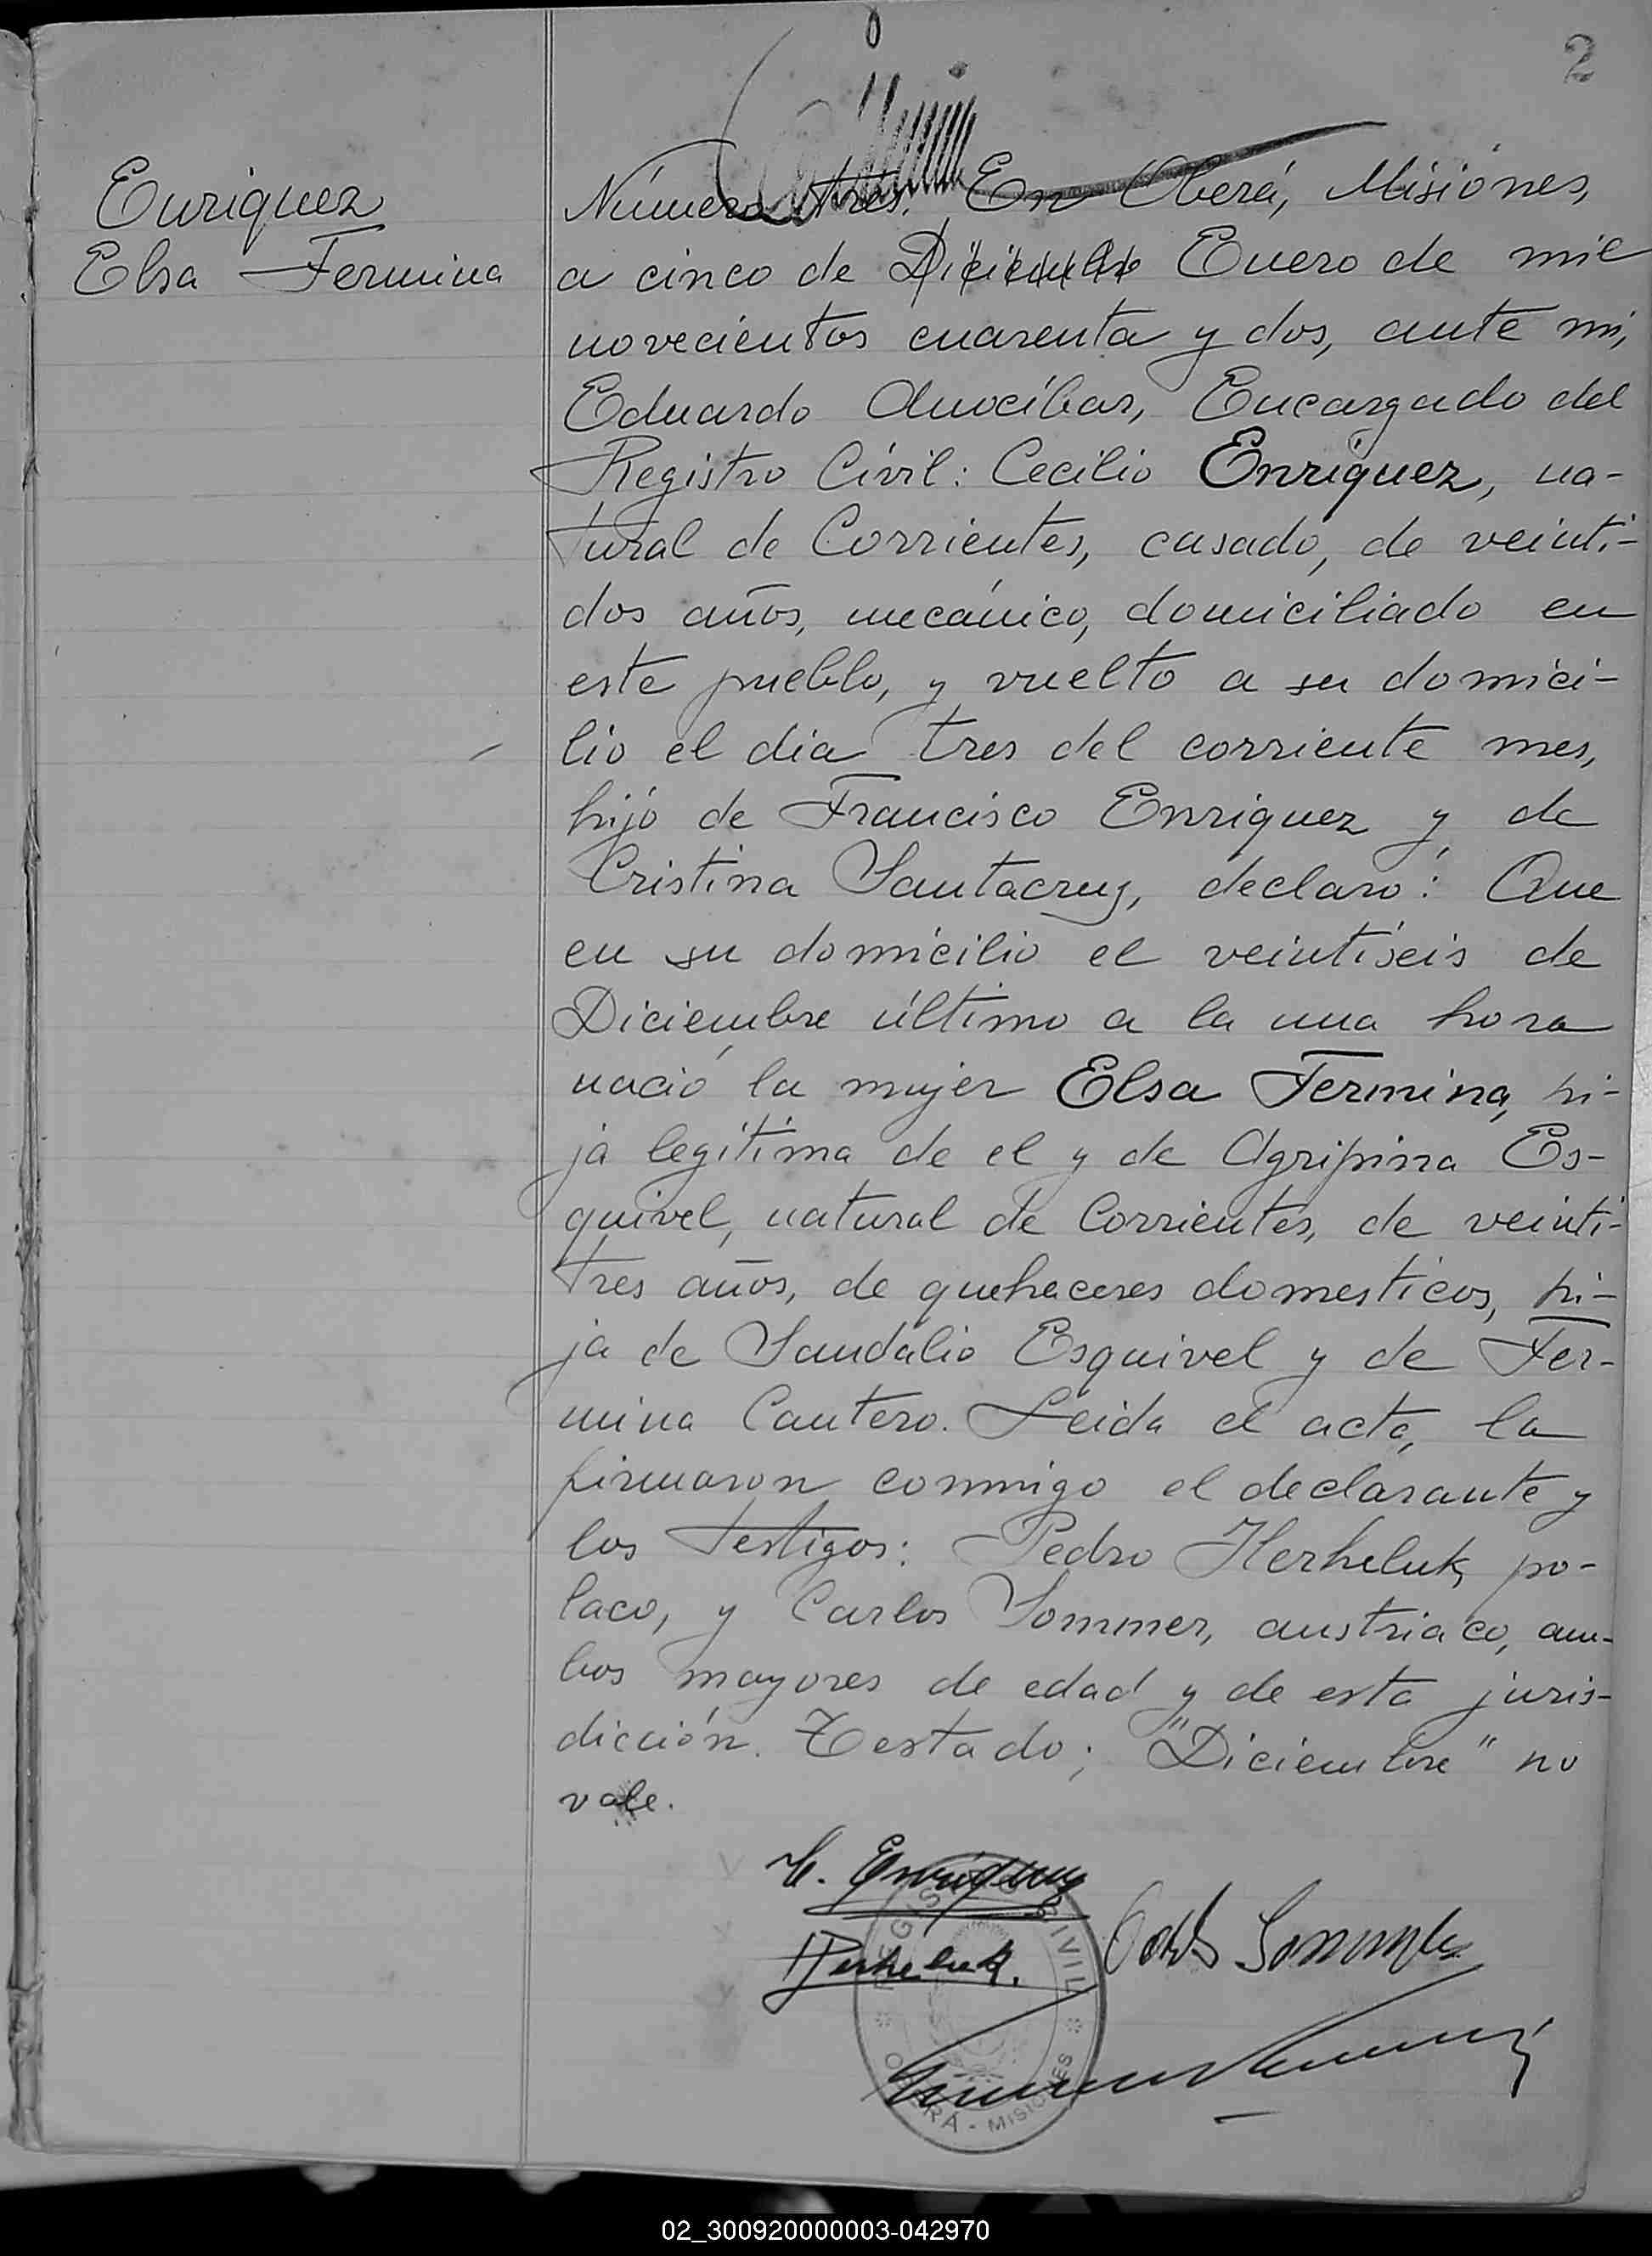 2
Enriquez
Elsa Fermina
Número tres. En Oberá, Misiones,
a cinco de Diciembre Enero de mil
novecientos cuarenta y dos, ante mi,
Eduardo Anocíbar, Encargado del
Registro Civil: Cecilio Enriquez, na-
tural de Corrientes, casado, de veinti-
dos años, mecánico, domiciliado en
este pueblo, y vuelto a su domici-
lio el dia tres del corriente mes,
hijo de Francisco Enriquez y de
Cristina Santacruz, declaró: Que
en su domicilio el veintiseis de
Diciembre último a la una hora
nació la mujer Elsa Fermina, hi-
ja legítima de el y de Agripina Es-
quivel, natural de Corrientes, de veinti-
tres años, de quehaceres domesticos, hi-
ja de Sandalio Esquivel y de Fer-
mina Cantero. Leida el acta, la
firmaron conmigo el declarante y
los testigos: Pedro Herheluk, po-
laco, y Carlos Sommer, austriaco, am-
bos mayores de edad y de esta juris-
dicción. Testado; "Diciembre" no
vale.
C. Enriquez
PHerheluk.
Sommer
REGISTRO CIVIL
OBERÁ - MISIONES
02_300920000003-042970